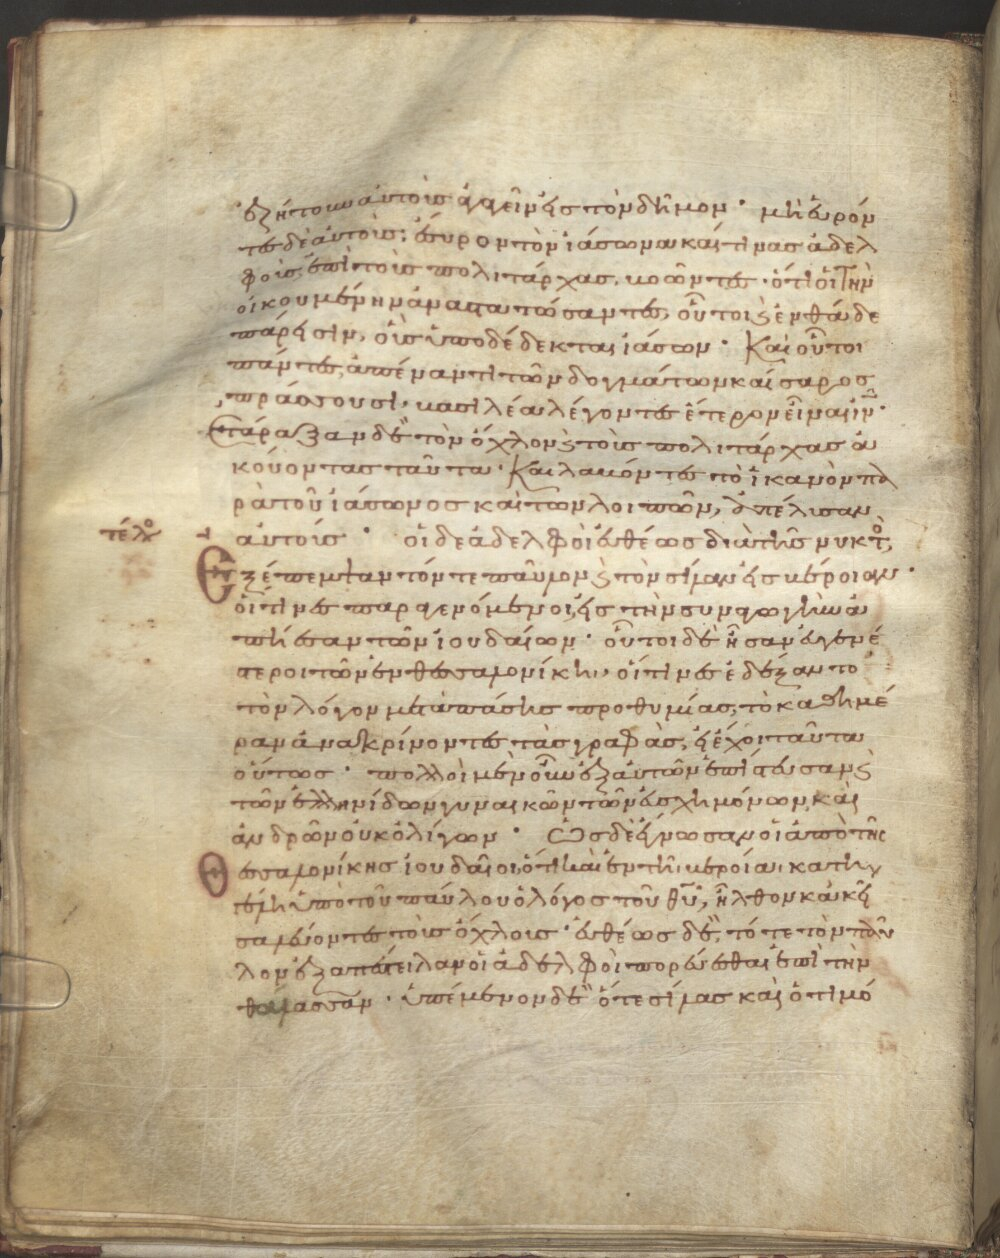 ἐζήτουν αὐτοὺς ἀγαγεῖν εἰς τὸν δῆμον · μὴ εὑρόν
τες δὲ αὐτοὺς, ἔσυρον τὸν ἰάσωνα καί τινας ἀδελ
φοὺς, ἐπὶ τοὺς πολιτάρχας, βοῶντες · ὅτι οἱ τὴν
οἰκουμένην ἀναστατώσαντες, οὗτοι ϗ ἐνθάδε
πάρεισιν, οὓς ὑποδέδεκται ἰάσων · Καὶ οὗτοι
πάντες, ἀπέναντι τῶν δογμάτων καίσαρος
πράσσουσι, βασιλέα λέγοντες ἕτερον εἶναι ἰν̅ ·
Ἐτάραξαν δὲ τὸν ὄχλον ϗ τοὺς πολιτάρχας ἀ
κούοντας ταῦτα · Καὶ λαβόντες τὸ ἱκανὸν πα
ρὰ τοῦ ἰάσωνος καὶ τῶν λοιπῶν, ἀπέλυσαν
τέλο
αὐτούς · οἱ δὲ ἀδελφοὶ εὐθέως διὰ τῆς νυκτὸ,
Ἐξέπεμψαν τόν τε παῦλον ϗ τὸν σίλαν εἰς βέροιαν ·
οἵτινες παραγενόμενοι, εἰς τὴν συναγωγὴν ἀ
πῄεσαν τῶν ἰουδαίων · οὗτοι δὲ ἦσαν εὐγενέ
στεροι τῶν ἐν θεσσαλονίκῃ, οἵτινες ἐδέξαντο
τὸν λόγον μετὰ πάσης προθυμίας, τὸ καθημέ
ραν ἀνακρίνοντες τὰς γραφὰς, εἰ ἔχοι ταῦτα
οὕτως · πολλοὶ μὲν οὖν ἐξ αὐτῶν ἐπίστευσαν ϗ
τῶν ἑλληνίδων γυναικῶν τῶν εὐσχημόνων, καὶ
ἀνδρῶν οὐκ ὀλίγων · Ὡς δὲ ἔγνωσαν οἱ ἀπὸ τῆς
Θεσσαλονίκης ἰουδαῖοι, ὅτι καὶ ἐν τῇ βεροίᾳ κατηγ
γέλη ὑπὸ τοῦ παύλου ὁ λόγος τοῦ θυ̅, ἦλθον κἀκεῖ
σαλεύοντες τοὺς ὄχλους · εὐθέως δὲ, τότε τὸν παῦ
λον ἐξαπέστειλαν οἱ ἀδελφοὶ πορεύεσθαι ἐπὶ τὴν
θάλασσαν · ὑπέμενον δὲ ὅτε σίλας καὶ ὁ τιμό